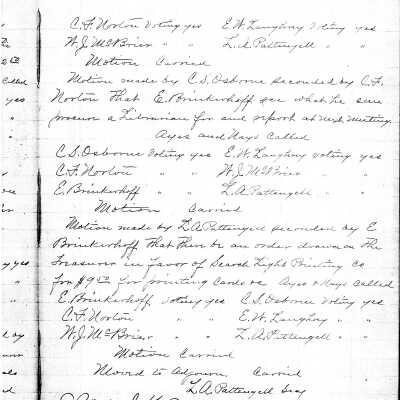 C. F. Norton Voting yes E. W. Laughry Voting yes
W. J. McBrier " " L. A. Pattengell " "
Motion Carried
Motion made by C S. Osborne seconded by C. F.
Norton that E. Brinkerhoff see what he can
procure a Librarian for and report at next meeting.
Ayes and Nays called
C S. Osborne Voting yes E. W. Laughry voting yes
C. F. Norton " " W. J. McBrier " "
E. Brinkerhoff " " L. A. Pattengell " "
Motion Carried
Motion made by L. A. Pattengell seconded by E
Brinkerhoff that there be an order drawn on the
Treasurer in favor of Search Light Printing Co
for $9 00 for printing cards &c Ayes & Nays called
E. Brinkerhoff voting yes C S. Osborne Voting yes
C. F. Norton " " E. W. Laughry " "
W. J. McBrier " " L. A. Pattengell " "
Motion Carried
Moved to Adjourn Carried
L. A. Pattengell Secy